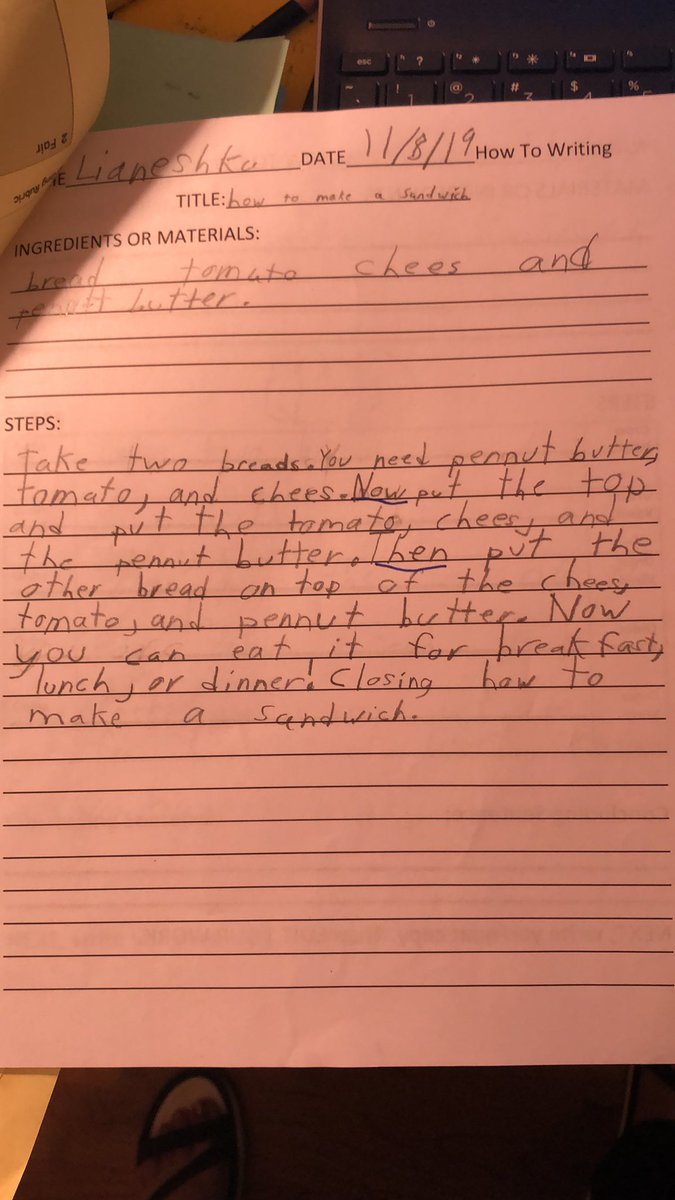 esc ? * *
! 1 @ 2 # 3 $ 4 %
2 Fair
Rubric
E Lianeshka DATE 11/8/19 How To Writing
TITLE: how to make a sandwich
INGREDIENTS OR MATERIALS:
bread tomato chees and
butter.
STEPS:
Take two breads. You need pennut butter,
tomato, and chees. Now put the top
and put the tomato, chees, and
the pennut butter. Then put the
other bread on top of the chees,
tomato, and pennut butter. Now
you can eat it for breakfast,
lunch, or dinner! Closing how to
make a sandwich.